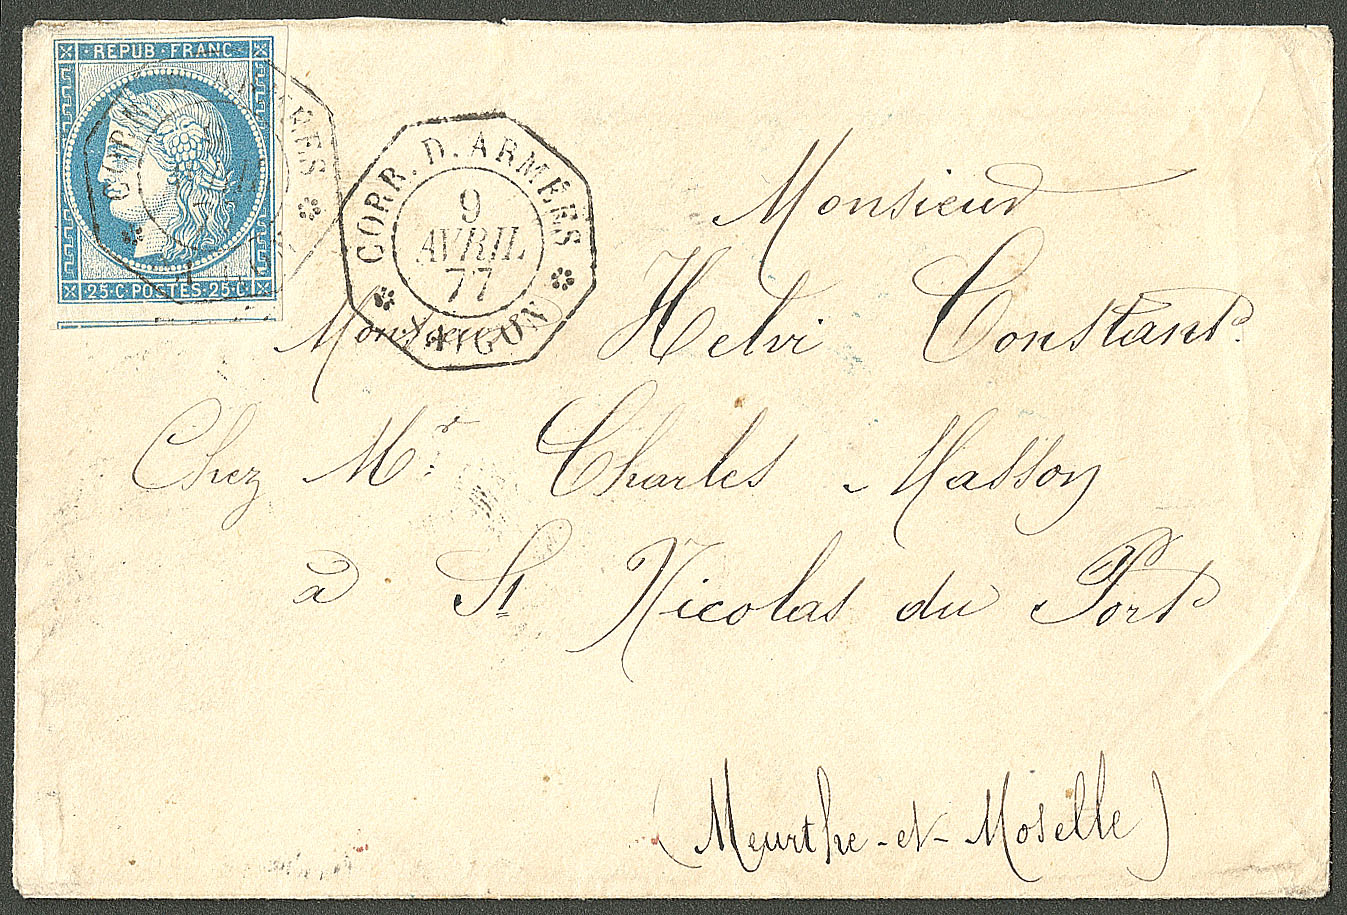 REPUB · FRANC
25 · C · POSTES · 25 · C ·
CORR. D. ARMÉES
CORR. D. ARMÉES
9
AVRIL
77
SAIGON
Monsieur
Monsieur Helvi Constant.
Chez Mr. Charles Masson
à St Nicolas du Port
(Meurthe-et-Moselle)